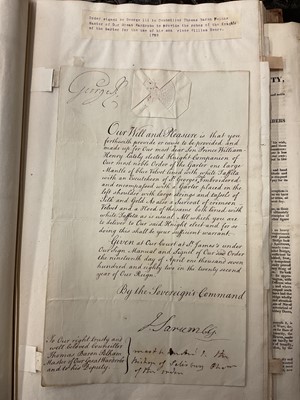 Order signed by George III to Counsellor Thomas Baron Pelham
Master of His Great Wardrobe to provide the robes of the Knights
of the Garter for the use of his son Prince William Henry.
1782
George R
Our Will and Pleasure is that you
forthwith provide or cause to be provided and
made up for Our most dear Son Prince William
Henry lately elected Knight Companion of
Our said noble Order of the Garter one large
Mantle of blue Velvet lined with white Taffeta
with an Escutcheon of St. George Embroidered
and encompassed with a Garter placed on the
left shoulder with large strings and tassels of
Silk and Gold As also a Surcoat of crimson
Velvet and a Hood of the same both lined with
white Taffeta as is usual. All which you are
to deliver to Our said Knight elect and for so
doing this shall be your sufficient warrant.
Given at Our Court at St. James's under
Our Sign Manual and Signet of Our said Order
the nineteenth day of April one thousand seven
hundred and eighty two in the twenty second
year of Our Reign.
By the Sovereign's Command
J. Sarum
To Our right trusty and
well beloved Counsellor
Thomas Baron Pelham
Master of Our Great Wardrobe
and to his Deputy.
Bishop of Salisbury